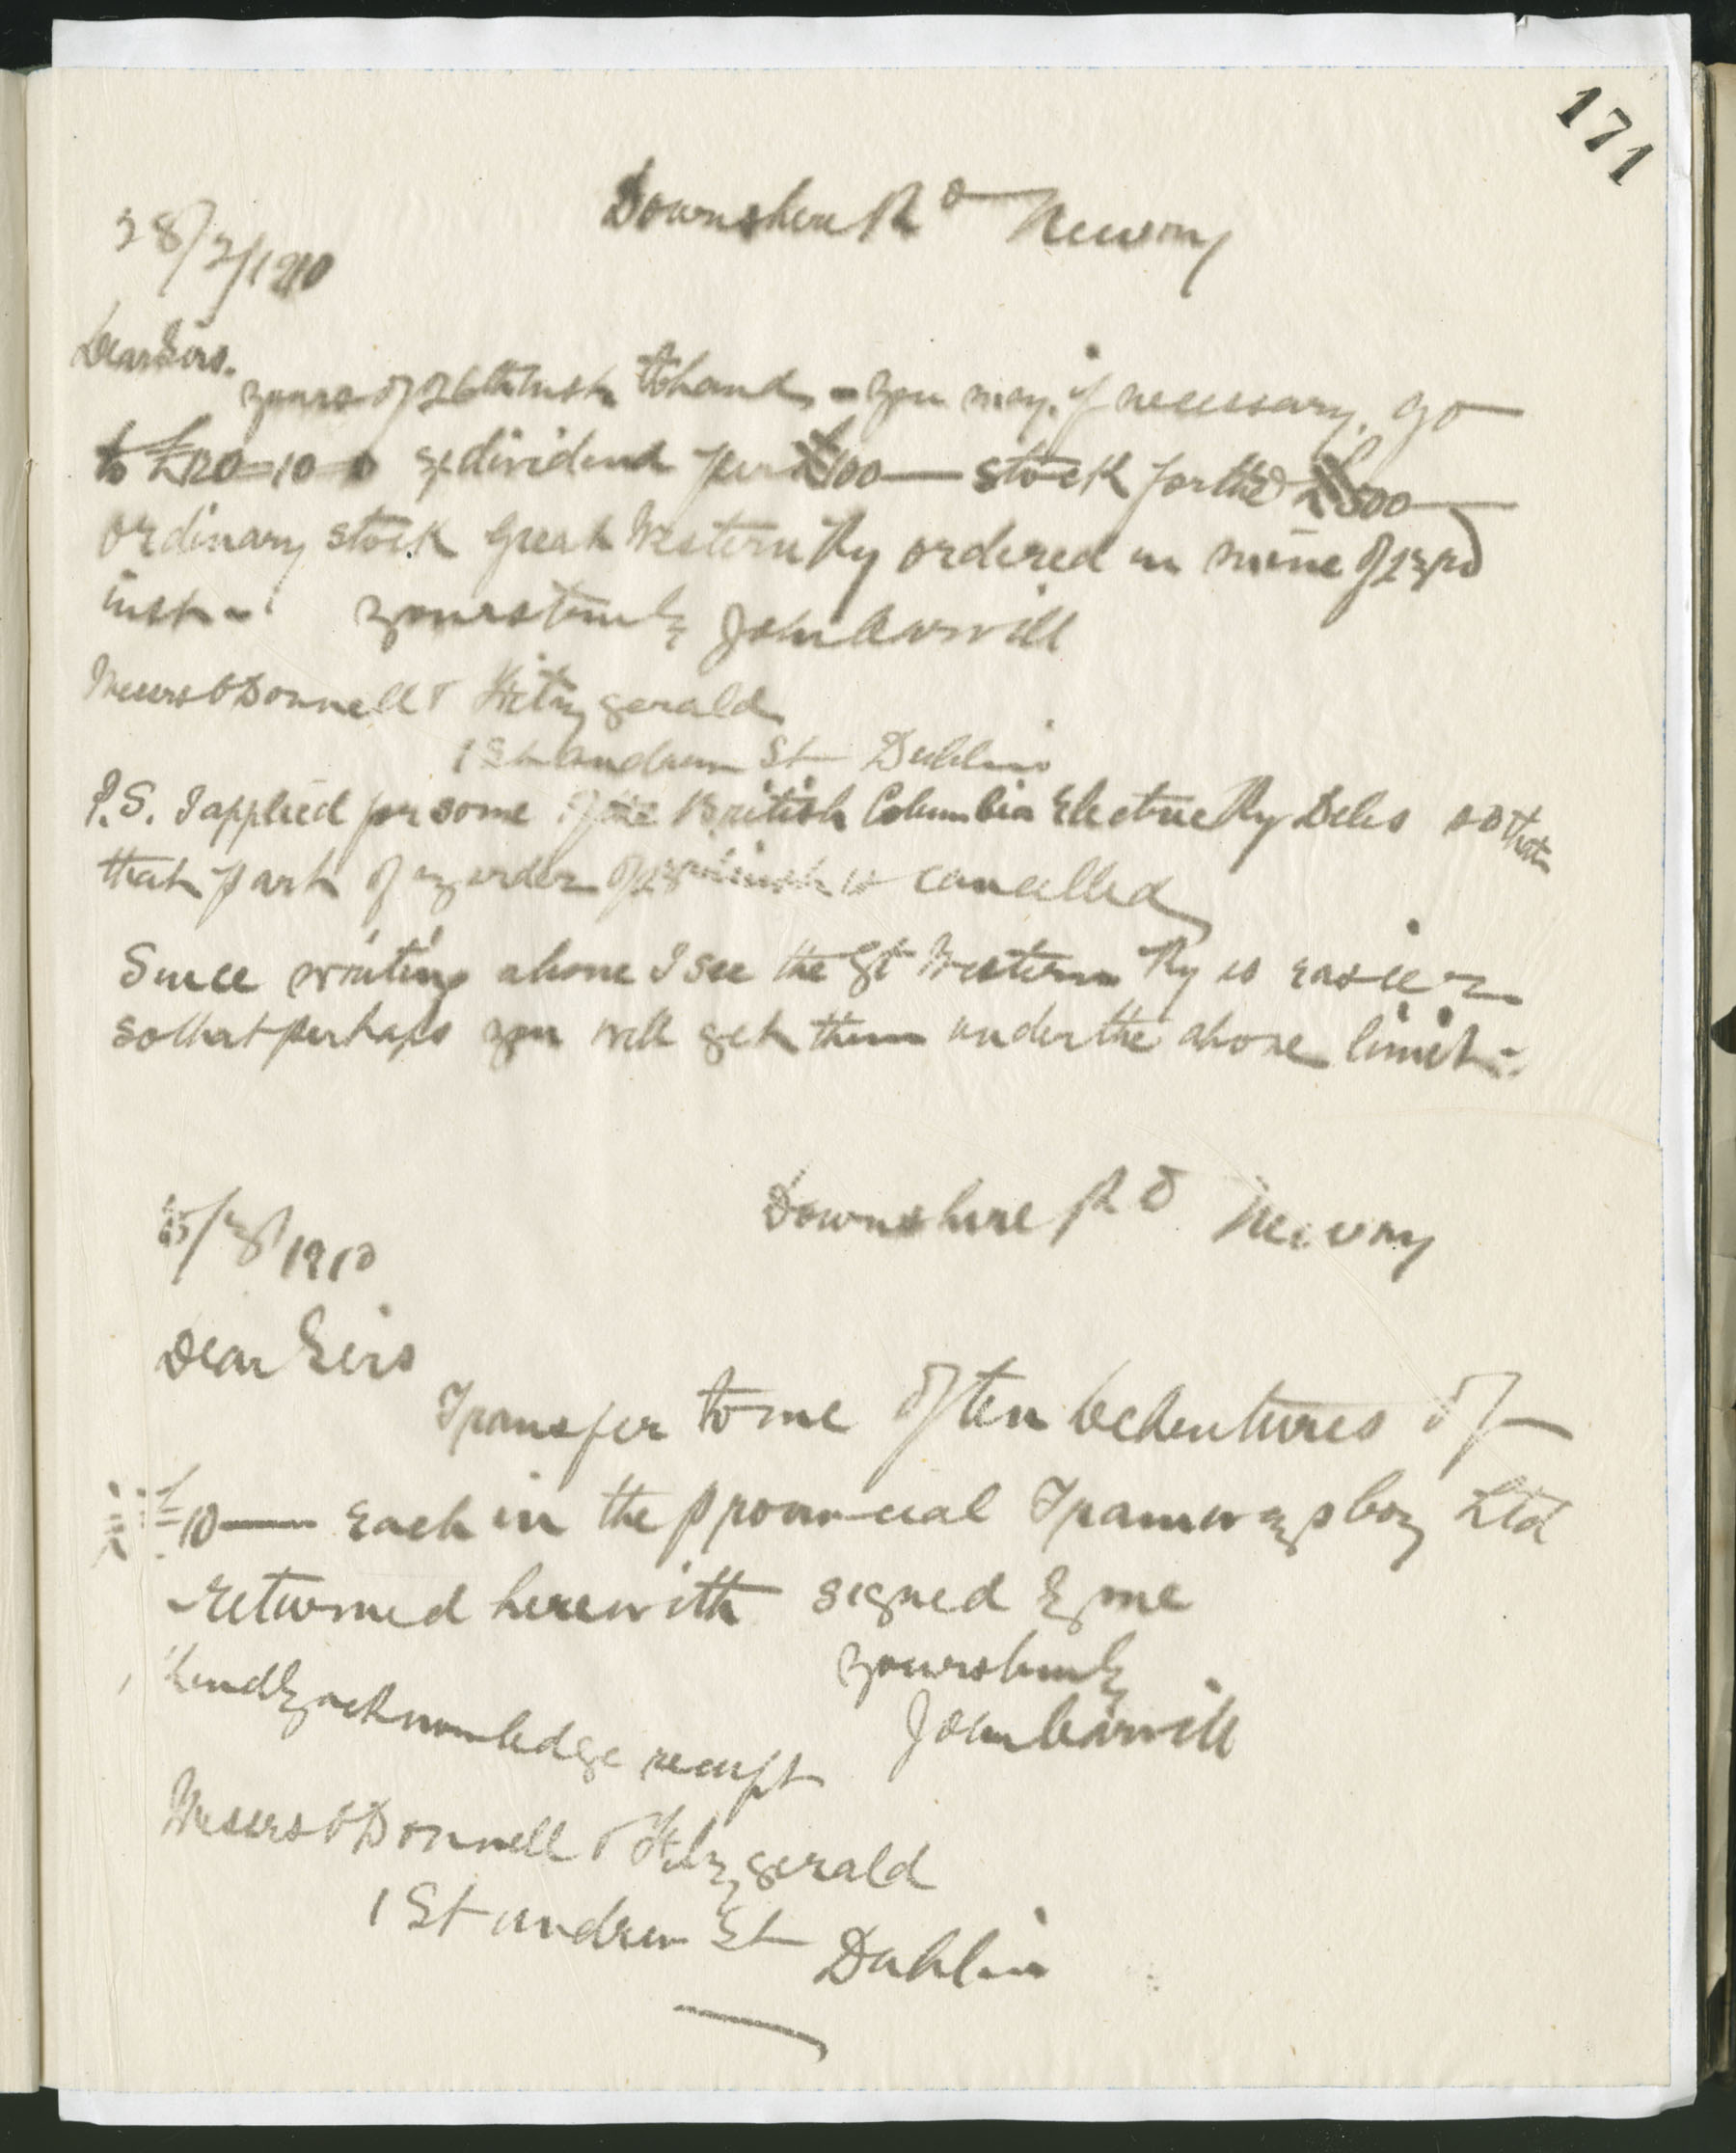 171
Downshire Rd Newry
28/2/1910
Dear Sirs.
yours of 26th inst to hand - you may, if necessary, go
to £120=10=0 exdividend per £100— stock for the £500—
ordinary stock Great Western Ry ordered in mine of 23rd
inst - yours truly John Carvill
Messrs O'Donnell & Fitzgerald
1 St Andrew St Dublin
P.S. I applied for some of the British Columbia Electric Ry Debs so that
that part of my order of inst is cancelled
Since writing above I see the Gt Western Ry is easier
so that perhaps you will get them under the above limit -
Downshire Rd Newry
5/3/1910
Dear Sirs
Transfer to me of ten debentures of
£10— each in the Provincial Tramways Coy Ltd
returned herewith signed by me
yours truly
Kindly acknowledge receipt John Carvill
Messrs O'Donnell & Fitzgerald
1 St Andrew St Dublin